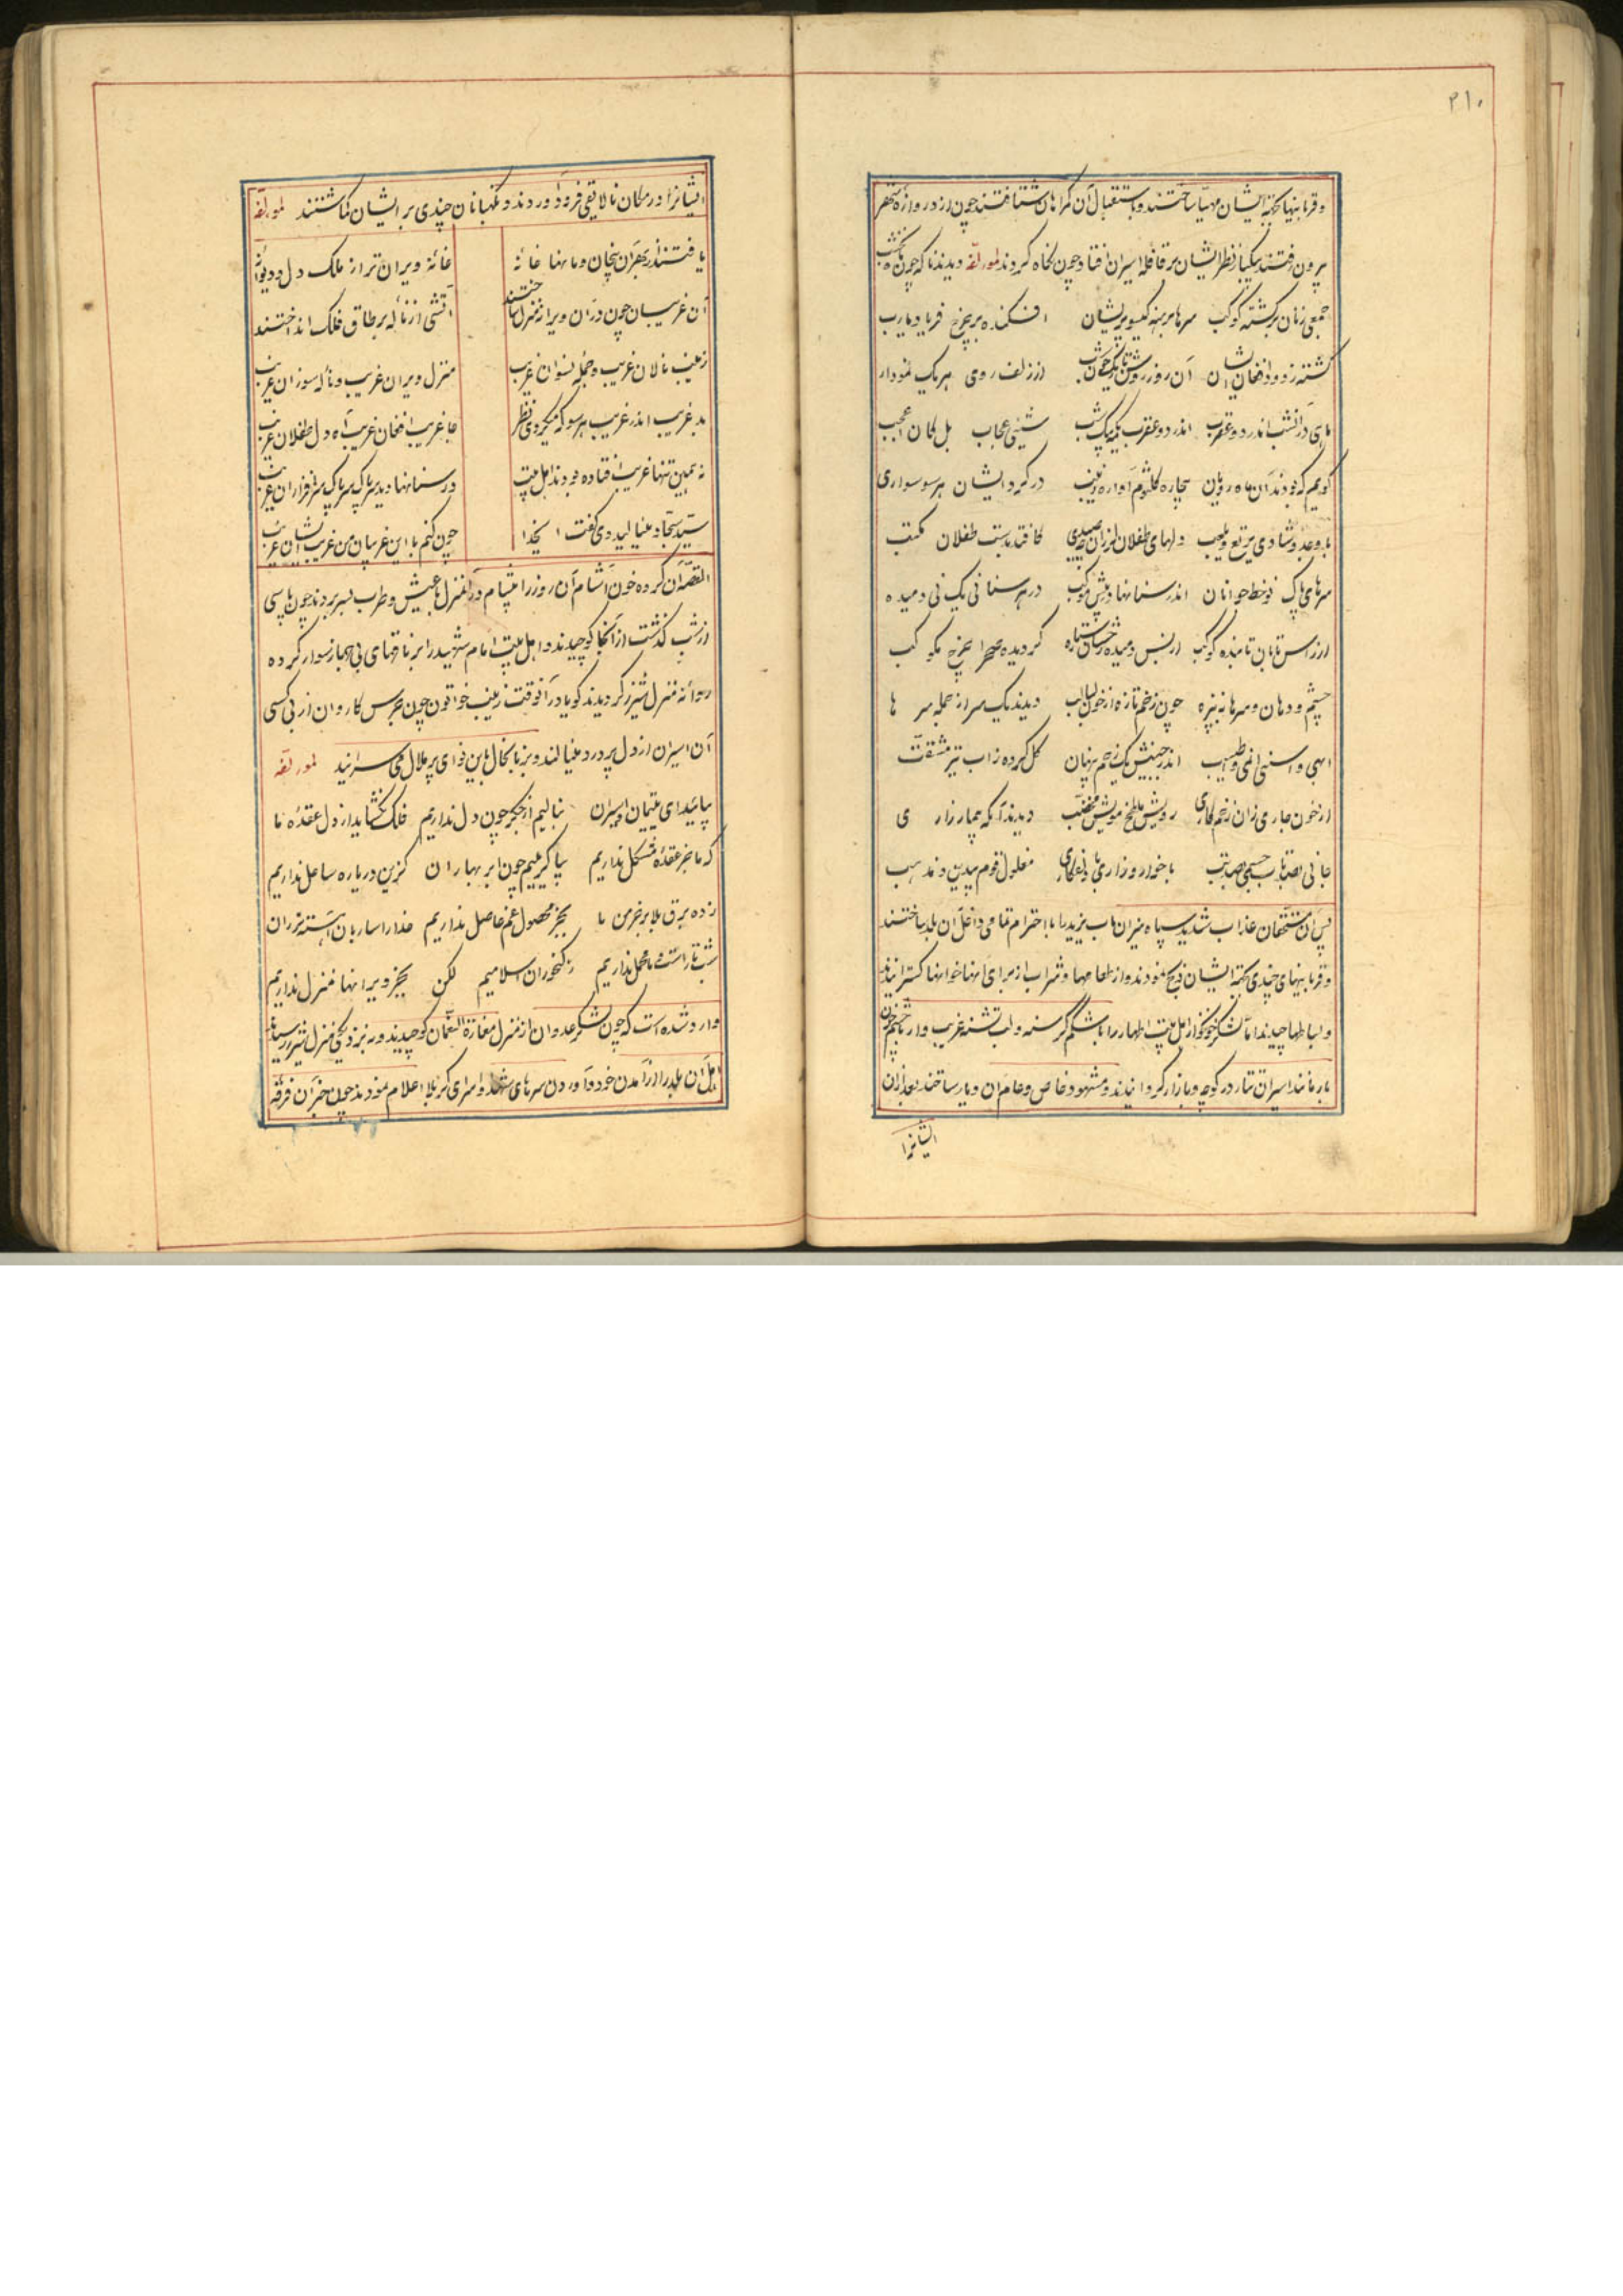 ۲۱۰
و قربانیها بجهة ایشان مهیا ساختند و باستقبال آن گمراهان شتافتند چون از دروازه شهر
بیرون رفتند یکبار نظر ایشان بر قافله اسیران افتاد چون نگاه کردند لمؤلفه دیدند ناکه چون
جمعی زنان برگشته کوکب سرها برهنه گیسو پریشان افکنده بر چرخ فریاد یارب
گشته ز دود افغان ایشان آن روز روشن تاریک چون شب از زلف و روی هر یک نمودار
ماهی در آنشب اندر دو عقرب اندر دو عقرب یکمه یک شب شیئی عجاب بل کان اعجب
گویم که بودند آن ماه رویان بیچاره کلثوم آواره زینب در گرد ایشان هر سو سواری
با وجد و شادی یرتع و یلعب دلهای طفلان لرزان صیدی کافتد بدست طفلان مکتب
سرهای پاک نوخط جوانان اندر سنانها در پیش موکب در هر سنانی یک نی دمیده
از راس تابان تابنده کوکب از بس دمیده رخشان ستاره گردیده صحرا چرخ مکوکب
چشم و دهان و سرها به نیزه چون زخم تازه از خون لبالب دیدند یک سر از جمله سر ها
ابهی و اسنی انمی و اطیب اندر جبینش یک زخم پنهان گل کرده ز آب تیر مشقت
از خون جاری زان زخم کاری رویش ملطخ مویش مخضب دیدند آنکه بیمار زار ی
جانی بصد تاب جسمی بصد تب با خوار و زاری با دلفکاری مغلول قوم بیدین و مذهب
پس آن مستحقان عذاب شدید سپاه میزان ماب یزید را با احترام تمامی داخل آن بلد ساختند
و قربانیهای چندی بجهة ایشان ذبح نمودند و از طعامها و شراب از برای آنها خوانها گسترانیدند
و بساطها چیدند اما لشکر خونخوار اهل بیت اطهار را با شکم گرسنه و لب تشنه غریب وار با چشم خون
بار مانند اسیران تتار در کوچه و بازار گردانیدند و مشهود خاص و عام آن دیار ساختند بعد از آن
ایشانرا
ایشانرا در مکان نالایقی فرود آوردند و نگهبانان چندی بر ایشان گماشتند لمؤلفه
یافتند از بهر آن بیخان و مانها خانهٔ خانهٔ ویران تر از ملک دل دیوانهٔ
آن غریبان چون در آن ویرانه منزل ساختند آتشی از ناله بر طاق فلک انداختند
زینب نالان غریب و جمله نسوان غریب منزل ویران غریب و ناله سوزان غریب
بد غریب اندر غریب هر سو که میکردی نظر جا غریب افغان غریب آه دل طفلان غریب
نه همین تنها غریب افتاده بودند اهل بیت در سنانها دید سر پاک سرافرازان غریب
سید سجاد مینالید و می گفت ایخدا چون کنم با این غریبان من غریب ایشان غریب
القصه آن گروه خون آشام آن روز را بشام در آنمنزل بعیش و طرب بسر بردند چون پاسی
از شب گذشت از آنجا کوچیدند و اهل بیت امام شهید را بر ناقهای بی جهاز سوار کرده
روانه منزل شیزر گردیدند گویا در آنوقت زینب خواتون چون جرس کاروان از بی کسی
آن اسیران از دل پر درد مینالند و بزبانحال باین نوای پر ملال میسرائید لمؤلفه
بیائید ای یتیمان اسیران بنالیم از جگر چون دل نداریم فلک نگشاید از دل عقدهٔ ما
که ما جز عقدهٔ مشکل نداریم بیا گرییم چون ابر بهاران کزین دریا ره ساحل نداریم
زده برق بلا بر خرمن ما بجز محصول غم حاصل نداریم خدا را ساربان آهسته تر ران
شب تار است و ما محمل نداریم ز گنجوران اسلامیم لکن بجز ویرانها منزل نداریم
وارد شده است که چون لشکر عدوان از منزل مغارة النعمان کوچیدند و به نزدیکی منزل شیزر رسیدند
اهل آن بلد را از آمدن خود و آوردن سرهای شهدا و اسرای کربلا اعلام نمودند چون خبر آن فرقه